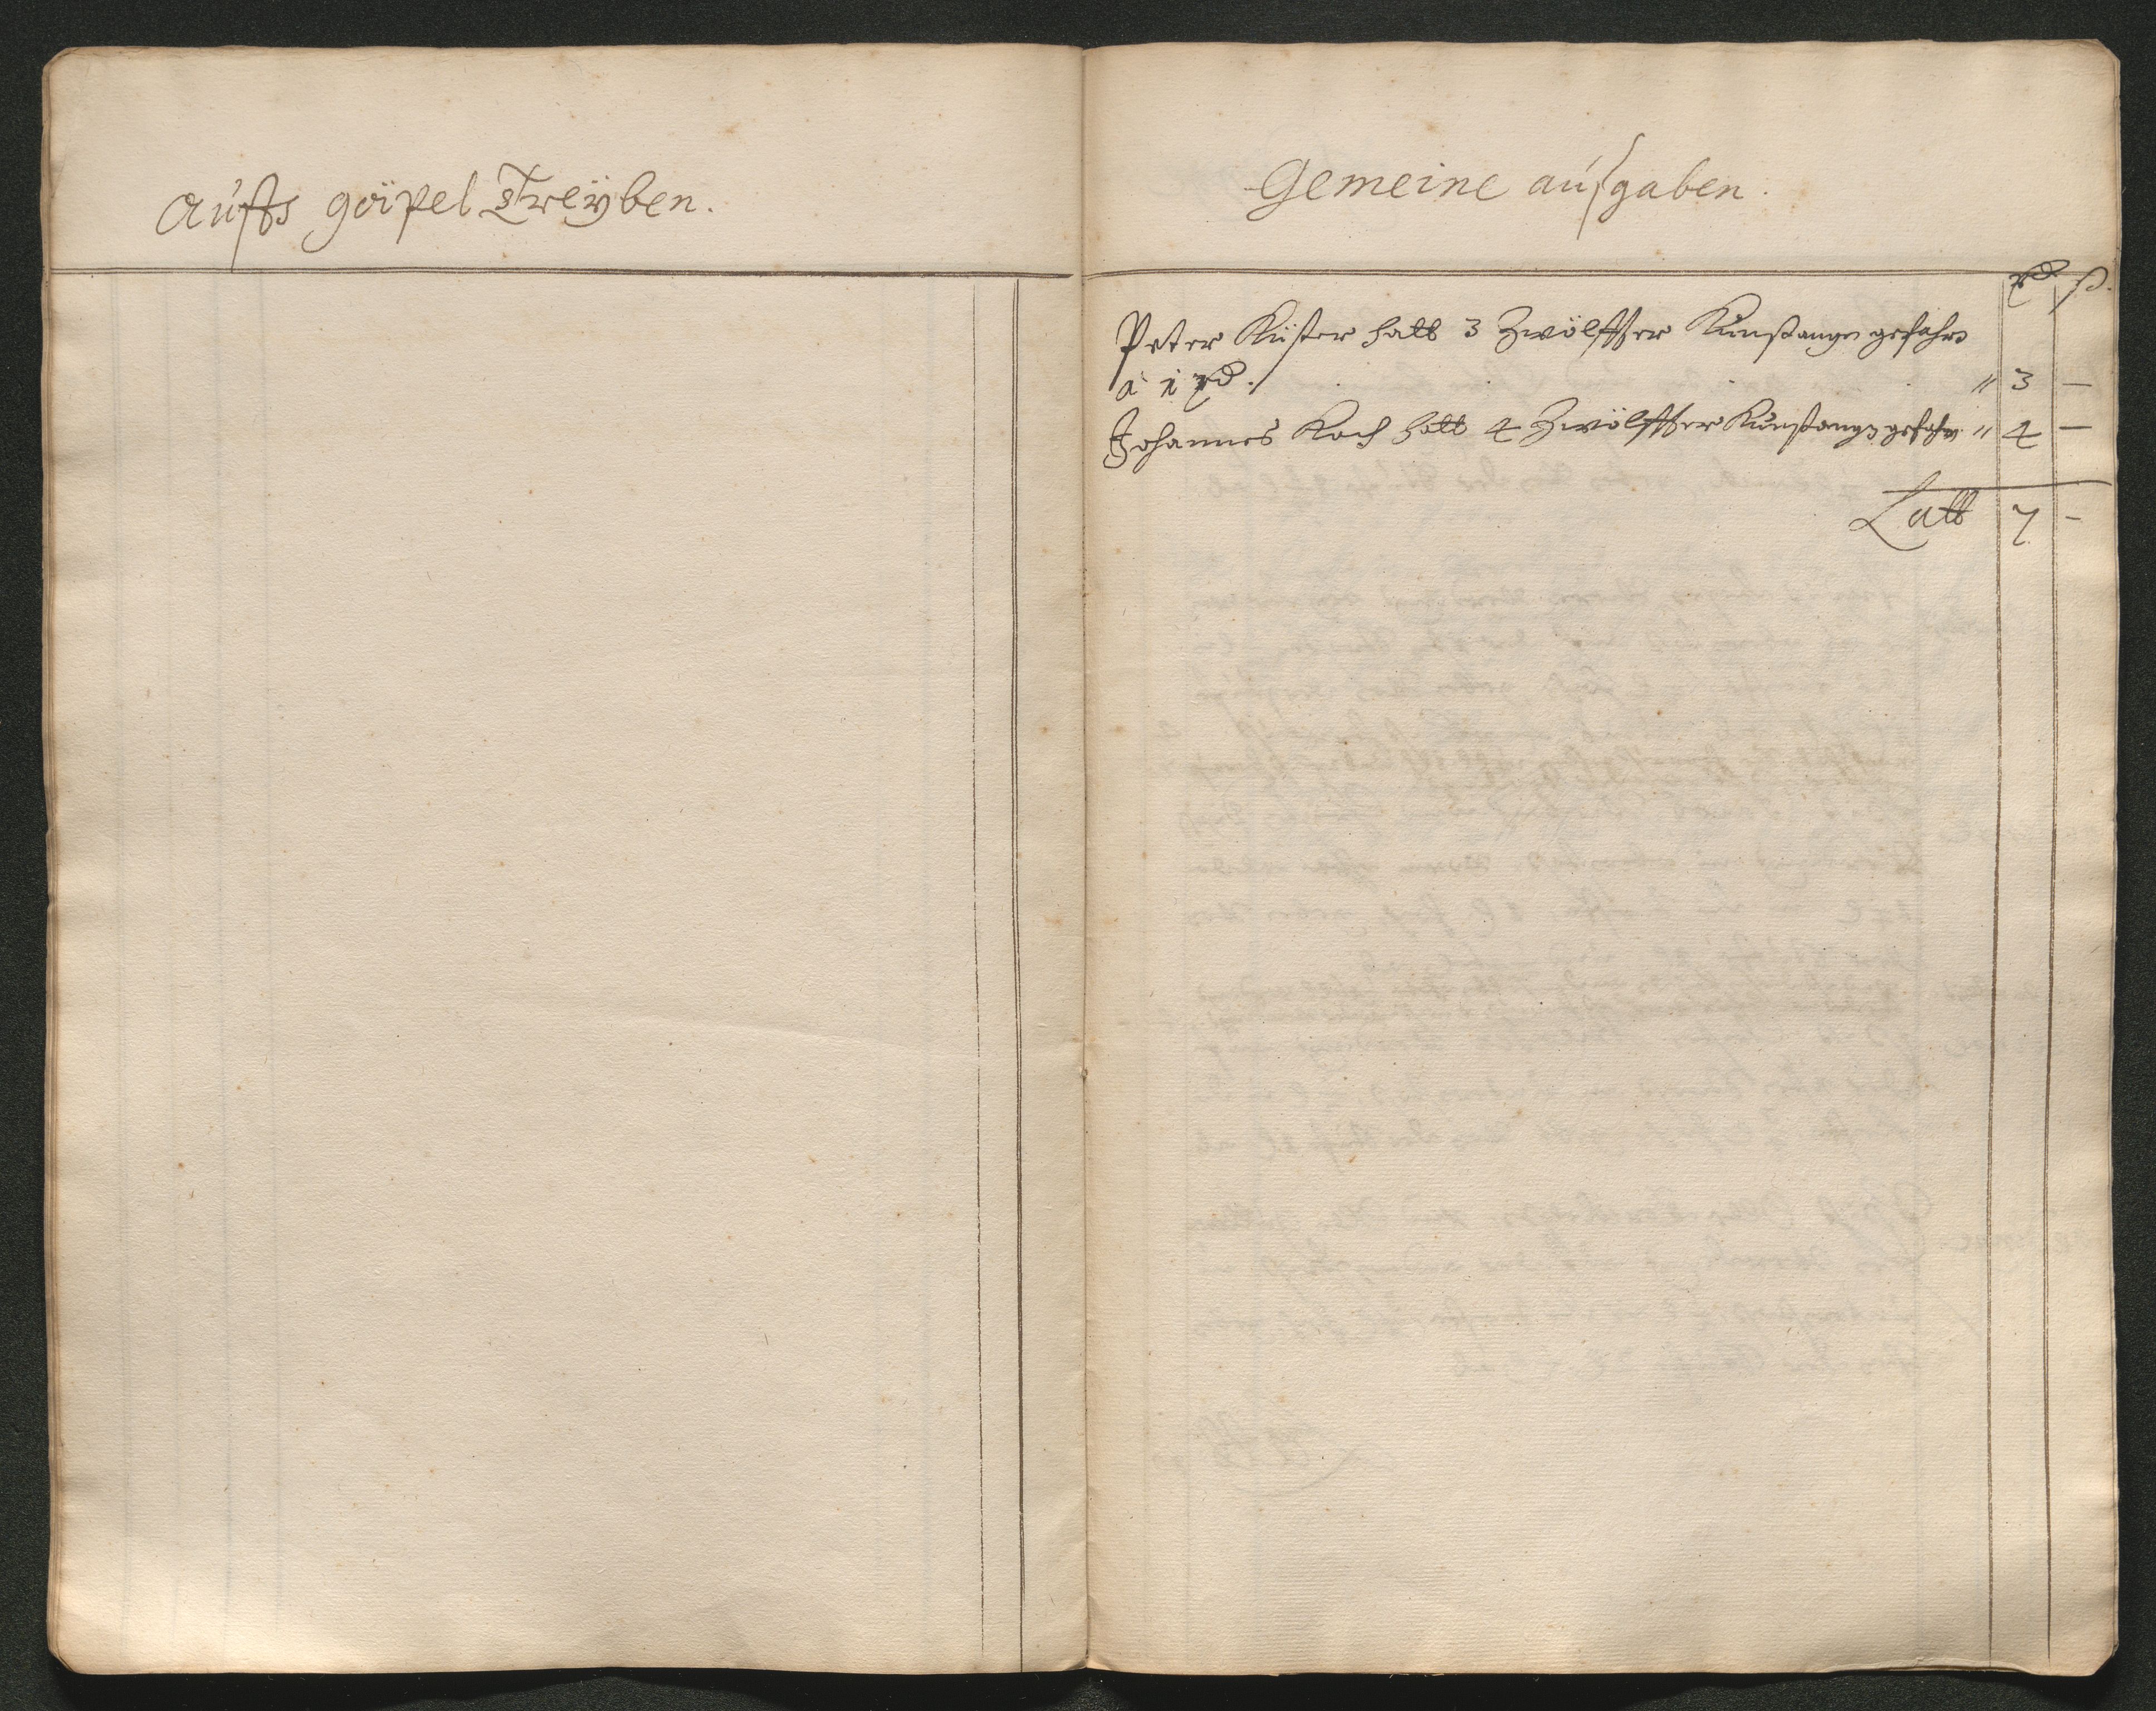 Auffs göipel Treÿben.
Gemeine außgaben.
rd. ß.
Peter Küster hatt 3 Zwölffter Kunstangen gefahrn
à 1 rd. . . . " 3 —
Johannes Koch hatt 4 Zwölffter Kunstangen gefahrn " 4 —
Latt 7 —